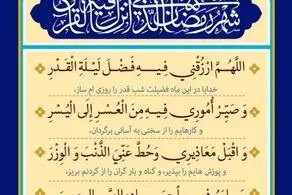 شهر رمضان الذی انزل فیه القرآن
اللَّهُمَّ ارْزُقْنِي فِيهِ فَضْلَ لَيْلَةِ الْقَدْرِ
خدایا در این ماه فضیلت شب قدر را روزی ام ساز،
وَ صَيِّرْ أُمُورِي فِيهِ مِنَ الْعُسْرِ إِلَى الْيُسْرِ
و کارهایم را از سختی به آسانی برگردان،
وَ اقْبَلْ مَعَاذِيرِي وَ حُطَّ عَنِّيَ الذَّنْبَ وَ الْوِزْرَ
و پوزش هایم را بپذیر، و گناه و بار گران را از گردنم بریز،